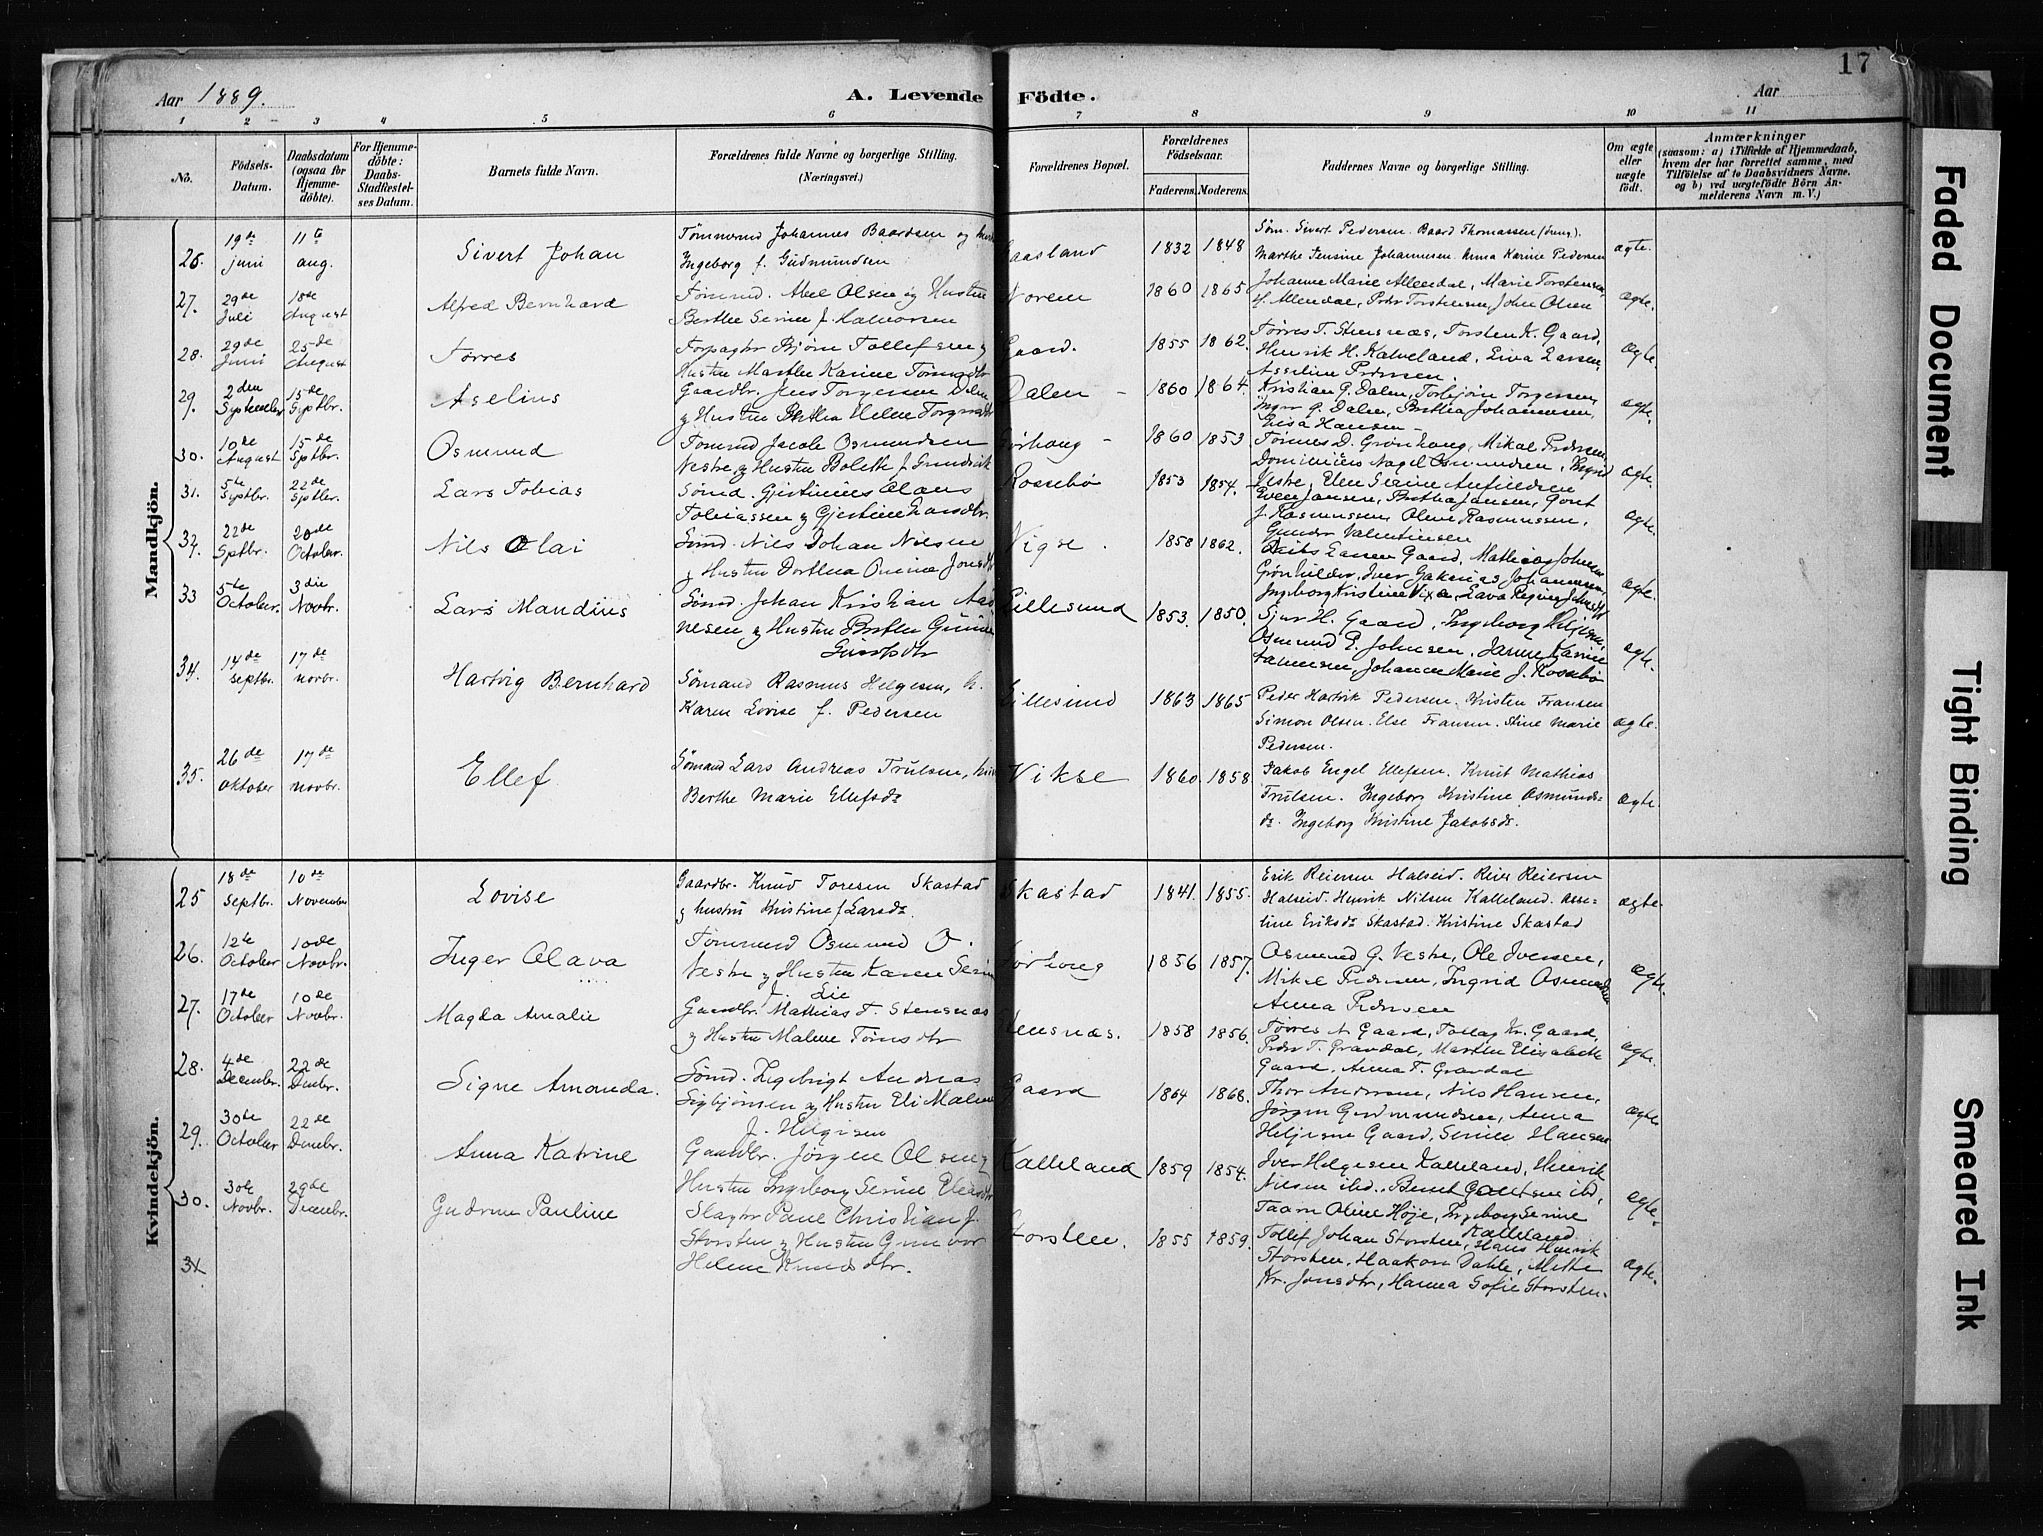 17
Aar 1889.
A. Levende Födte.
Aar
1 2 3 4 5 6 7 8 9 10 11
No.
Födsels-Datum.
Daabsdatum (ogsaa for Hjemme-döbte).
For Hjemme-döbte: Daabs-Stadfæstel-ses Datum.
Barnets fulde Navn.
Forældrenes fulde Navne og borgerlige Stilling. (Næringsvei.)
Forældrenes Bopæl.
Forældrenes Födselsaar.
Faderens. Moderens.
Faddernes Navne og borgerlige Stilling.
Om ægte eller uægte födt.
Anmærkninger
(saasom: a) i Tilfælde af Hjemmedaab,
hvem der har forrettet samme, med
Tilföielse af to Daabsvidners Navne,
og b) ved uægtefödte Börn An-
melderens Navn m. V.)
Mandkjön.
26. 19de juni 11te aug. Sivert Johan
Tømmermd Johannes Baardsen og
Ingeborg f. Gudmundsen
1832 1848
Søm. Sivert Pedersen. Baard Thomassen
Marthe Jensine Johannesen. Anna Karine Pedersen
ægte.
27. 29de Juli 18de August Alfred Bernhard
Tømmd. Abel Olsen og Hustru
Berthe Serine f. Halvorsen
1860 1865
Johanne Marie Allendal, Marie Torstensen,
H. Allendal, Peder Torstensen, John Olsen
ægte.
28. 29de Juni 25de August Tørres
Bjørn Tollefsen
Hustru Marthe Karine
Gaard.
1855 1862.
Tørres T. Stensnæs, Torsten K. Gaard,
Henrik H. Kalveland, Larsen,
Asseline
ægte.
29. 2den September 15de Septbr. Aselius
Gaardbr. Jens Torgersen Dalen
og Hustru Berthea Helene
Dalen
1860 1864.
Kristian G. Dalen, Torbjørn Torgersen,
G. Dalen, Berthea Johannesen,
Hansen
ægte.
30. 10de August 15de Septbr. Osmund
Tømmd Jacob Osmundsen
Vestre og Hustru Bolette f.
1860 1853
Tønnes D. Grønhaug, Mikal Pedersen
Nagel Osmundsen, Ingrid
Vestre, Elen Serine
ægte.
31. 5te Septbr. 22de Septbr. Lars Tobias
Sømd. Olaus
Tobiassen og Gjertine
Rossebø
1853 1854.
Even Jansen, Berthea Jansen, Gort
J. Rasmussen, Oline Rasmussen,
Gunder Valentinsen
ægte.
32. 22de Sptbr. 20de October. Nils Olai
Sømd. Nils Johan Nilsen
og Hustru Dorthea
1858 1862.
Larsen Gaard, Mathias Johnsen
Johannesen,
Ingeborg Kristine Vixe,
ægte.
33 5te October. 3die Novbr. Lars Mandius
Sømd. Johan Kristian
nesen og Hustru Berthe
Lillesund
1853. 1850.
Sjur H. Gaard, Ingeborg
Osmund E. Johnsen,
Johanne Marie J. Rossebø
ægte.
34. 14de septbr. 17de novbr. Hartvig Bernhard
Sømand Rasmus Helgesen, h.
Karen Lovise f. Pedersen
Lillesund
1863 1865
Peder Hartvik Pedersen. Kristen Fransen
Simon Olsen. Else Fransen. Stine Marie
Pedersen.
ægte.
35. 26de oktober 17de novbr. Ellef
Sømand Lars Andreas Trulsen,
Berthe Marie Ellefsdr
Vikse
1860. 1858
Jakob Engel Ellefsen. Knut Mathias
Trulsen. Ingeborg Kristine Osmunds=
dr. Ingeborg Kristine Jakobsdr.
ægte.
Kvindekjön.
25 18de septbr. 10de November Lovise
Gaardbr. Knud Toresen Skastad
og hustru Kristine f. Larsdr
Skastad
1841. 1855.
Erik Reiersen Halseid. Reier Reiersen
Halseid. Henrik Nilsen Kalleland. Asse=
line Eriksdr Skastad. Kristine Skastad
ægte.
26. 12te October 10de Novbr. Inger Olava
Tømmermd Osmund O.
Vestre og Hustru Karen
f. Lie
1856 1857.
Osmund G. Vestre, Ole Iversen,
Mikel Pedersen, Ingrid
Anna Pedersen
ægte.
27. 17de October 10de Novbr. Magda Amalie
Gaardbr. Mathias T. Stensnæs
og Hustru Malene
1858 1856.
Tørres A Gaard, Tollag Kr. Gaard,
Peder T. Gravdal, Marthe Elisabeth
Gaard, Anna T. Gravdal
ægte.
28. 4de Decembr. 22de Signe Amanda.
Sømd. Ingebrigt Andreas
Sigbjørnsen og Hustru Eli Malene
f. Helgesen
Gaard
1864 1868.
Thor Andersen, Nils Hansen,
Jørgen Gudmundsen, Anna
Gaard, Serine Hansen
ægte
29. 30te October 22de Anna Katrine
Gaardbr. Jørgen Olsen og
Hustru Ingeborg Serine
Kalleland
1859 1854.
Iver Helgesen Kalleland, Henrik
Nilsen ibd., ibd,
Oline Høje, Ingeborg Serine
Kalleland
ægte.
30. 30te Novbr. 29de Decembr. Gudrun Pauline
Slagter Paul Christian J.
Storsten og Hustru
Helene
1855 1859.
Tollef Johan Storsten, Hans Henrik
Storsten, Haakon Dahle, Mette
Kr. Jonsdtr, Hanna Sofie Storsten.
ægte.
31
Faded Document
Tight Binding
Smeared Ink